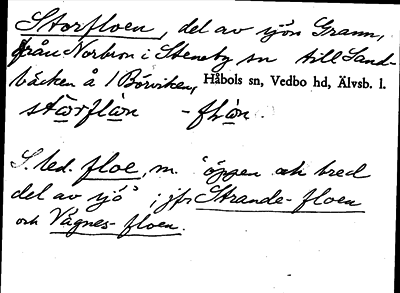 Storfloen, del av sjön Grann,
från Norbron i Steneby sn till Sand-
bäcken å / Börviken, Håbols sn, Vedbo hd, Älvsb. l.
S. led. floe, m. "öppen och bred
del av sjö"; jfr Strande-floen
och Vågnes-floen.